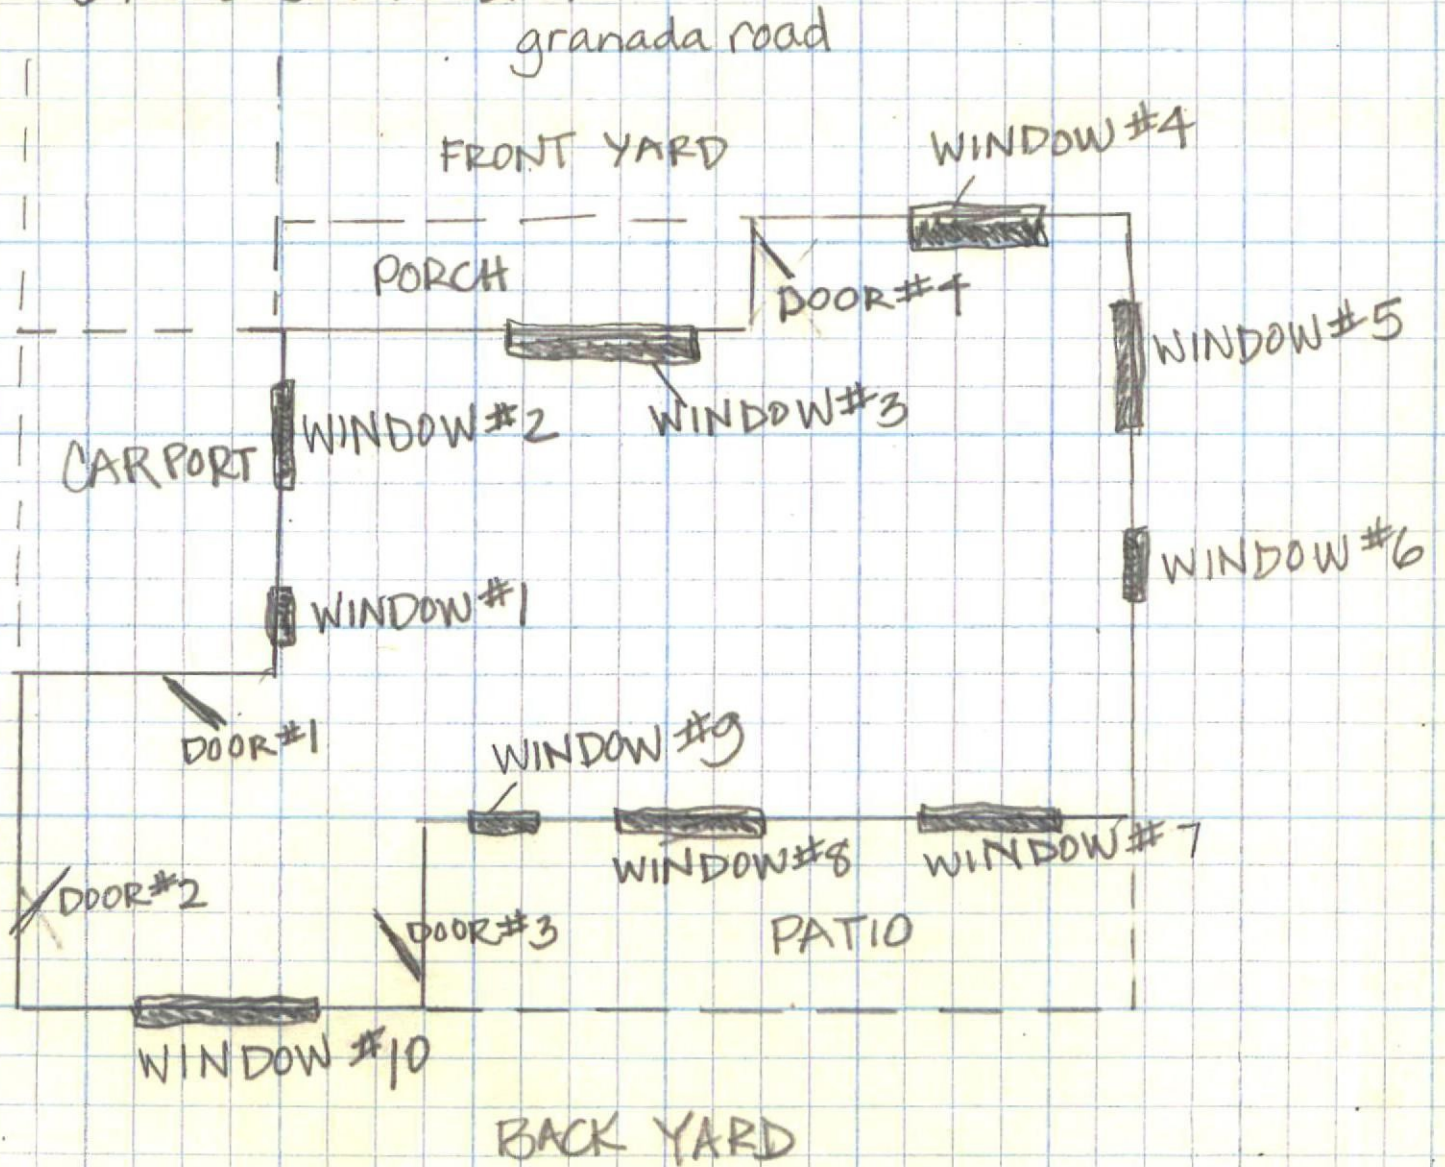 granada road
FRONT YARD
WINDOW #4
PORCH
DOOR #4
WINDOW #5
WINDOW #2
WINDOW #3
CARPORT
WINDOW #6
WINDOW #1
DOOR #1
WINDOW #9
WINDOW #8
WINDOW #7
DOOR #2
DOOR #3
PATIO
WINDOW #10
BACK YARD